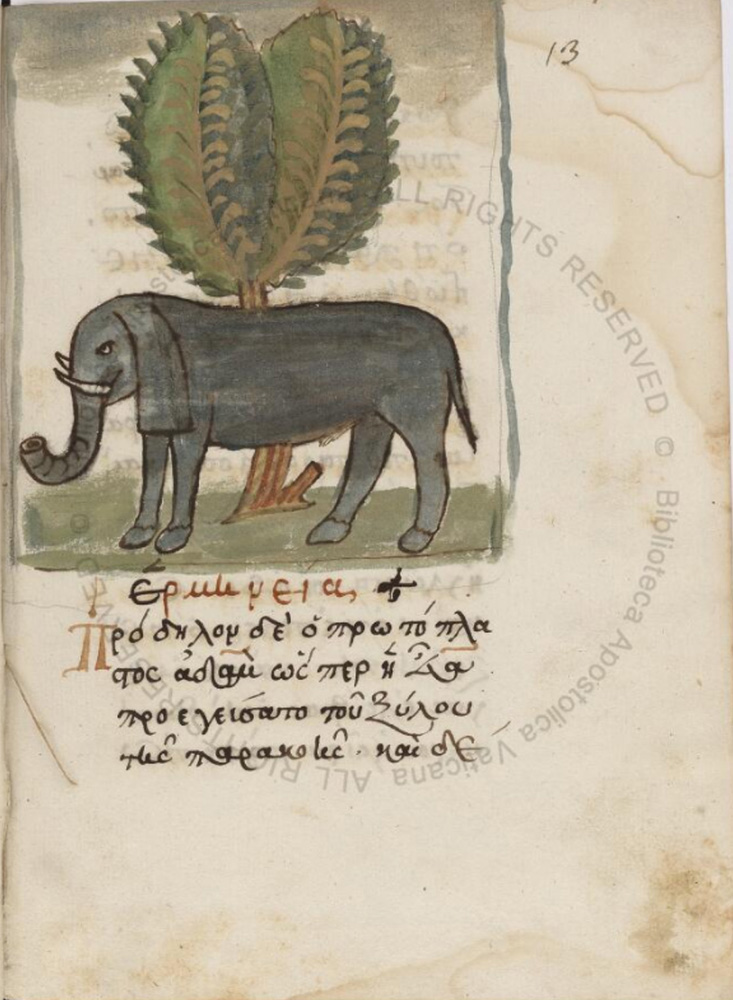 13
ἑρμηνείας +
Πρόδηλον δὲ ὁ πρωτόπλα
στος ἀδαμ ὥσπερ ἡ ἔυα
προεγείσατο τοῦ ξύλου
τῆς παρακοῆς · καὶ δὲ
ALL RIGHTS RESERVED © Biblioteca Apostolica Vaticana ALL RIGHTS RESERVED ©